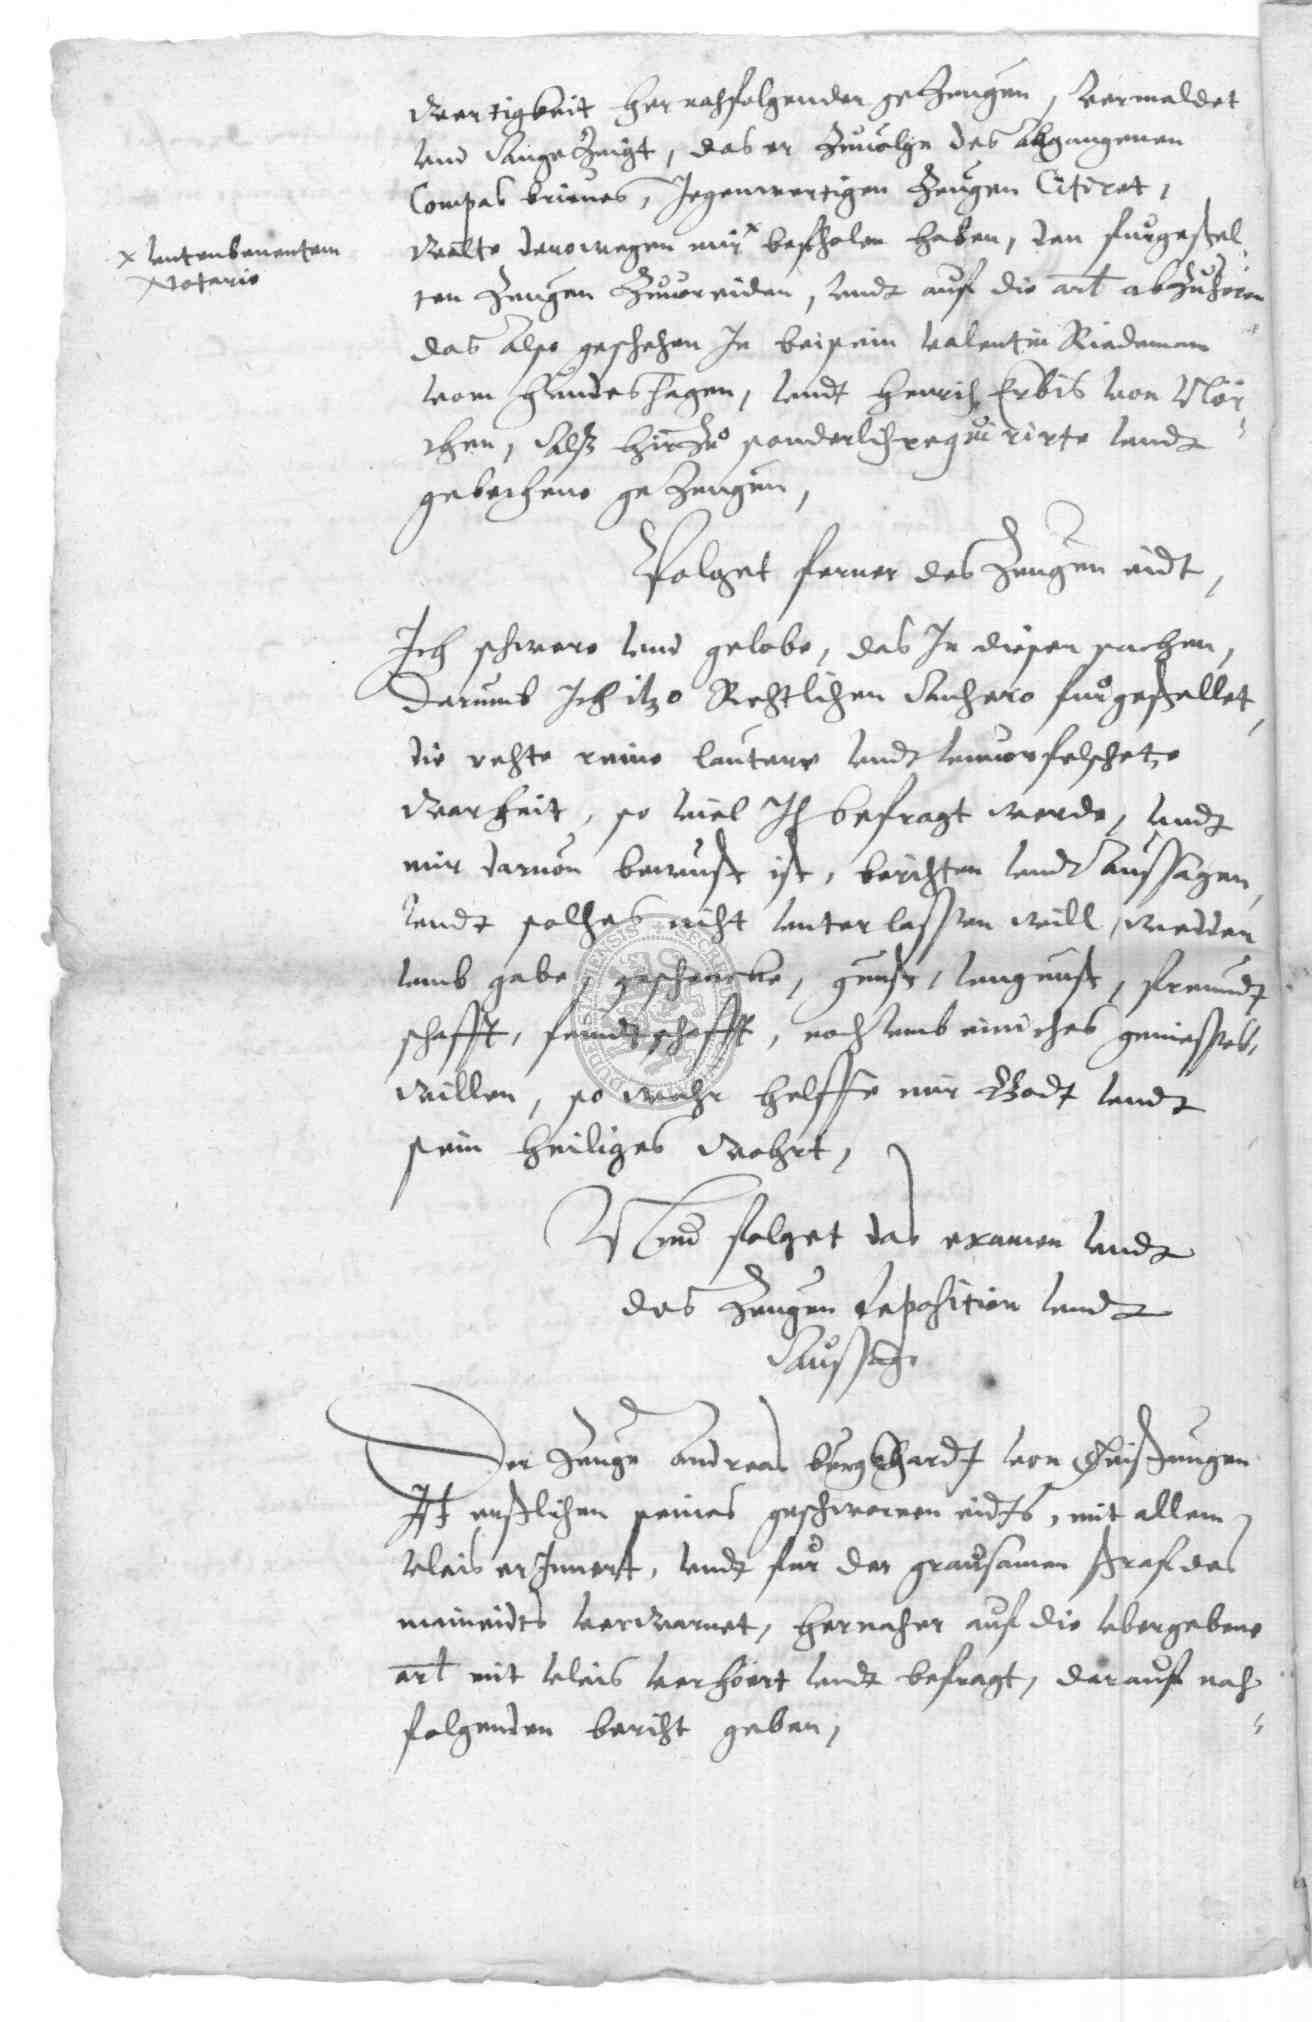 wertigkeit hernachfolgender gezeugen, vermeldet
und angezeigt, das er zuuolge des abgangenen
Compas brieues, Jegenwertigen Zeugen Citiret,
wolte derowegen mir x befholen haben, den furgestel-
x untenbenentem
Notario
ten Zeugen zuuoreiden, undt auf die art abzuhören
das also geschehen In beisein Valentin Riedeman
vom Hundeshagen, undt Henrich Erbis von Nör
then, alß hirzu sonderlich requirirte undt
gebethene gezeugen,
Folget ferner des Zeugen eidt,
Ich schwere und gelobe, das In diesen sachen,
darumb Ich itzo Rechtlichen anhero furgestellet,
die rechte reine lautere undt unuorfelschete
warheit, so viel Ich befragt werde, undt
mir daruon bewust ist, berichten undt aussagen,
undt solches nicht unterlassen will, wedder
umb gabe, geschencke, gunst, ungunst, freundt
schafft, feindtschafft, noch umb einiches geniesses
willen, so wahr helffe mir Godt undt
sein heiliges wohrt,
Nun folget das examen undt
des Zeugen deposition undt
Aussage
Der Zeuge Andreas burgkhardt von Geißungen
Ist erstlichen seines geschwornen eidts, mit allem
vleis erJnnert, undt fur der grausamen straf des
meineidts verwarnet, hernacher auf die ubergebene
art mit vleis verhöert undt befragt, darauf nach-
folgenden bericht geben,